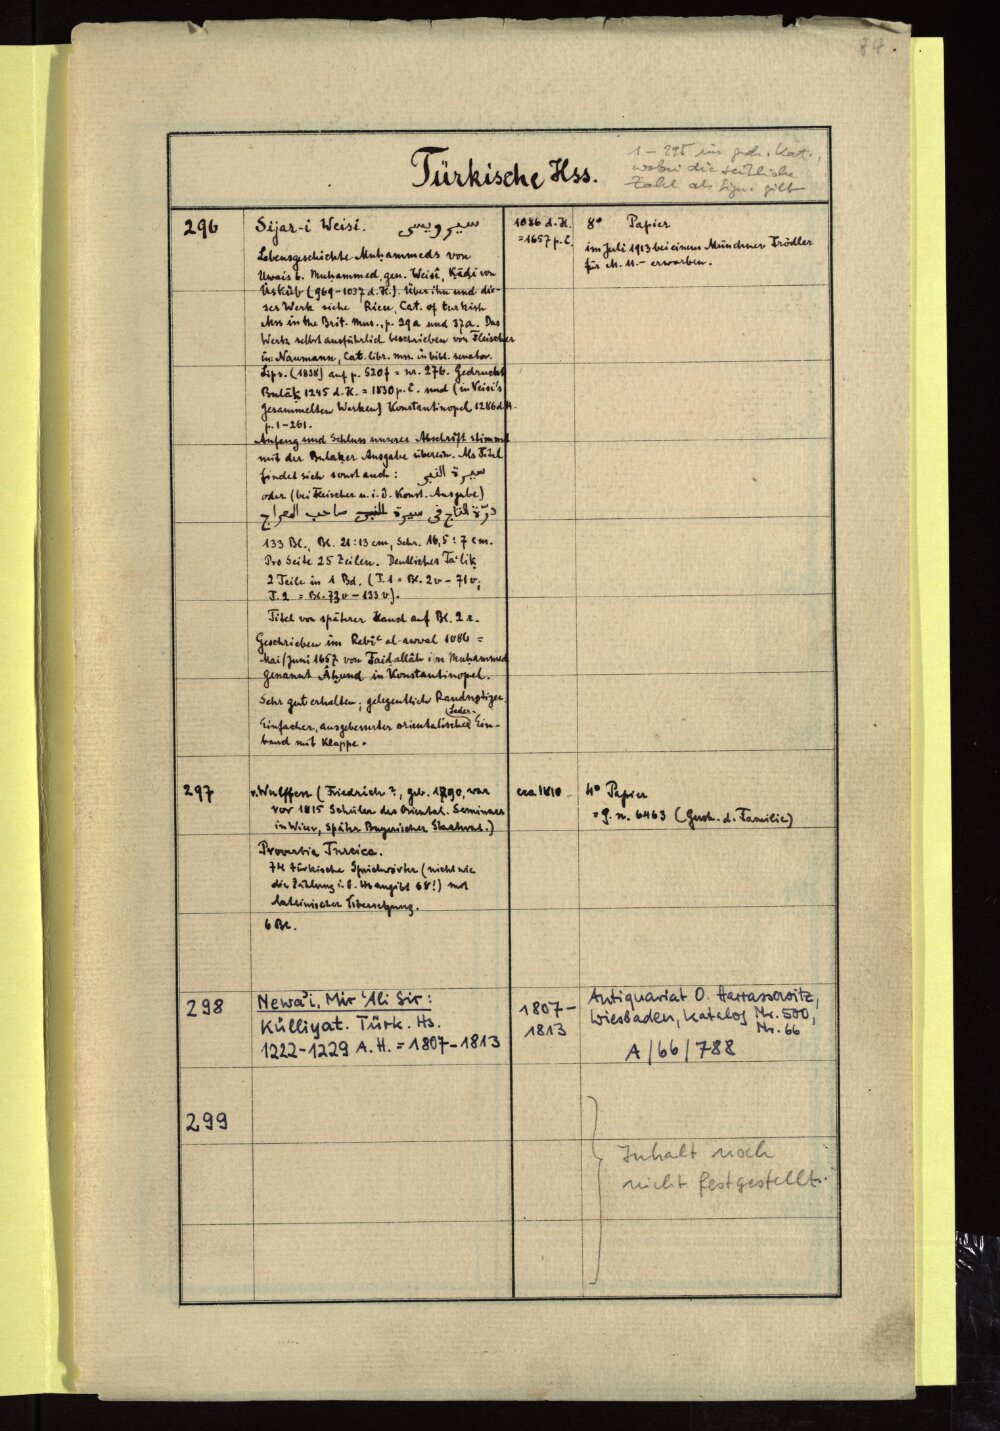 87.
Türkische Hss.
1–295 im gedr. Kat.,
wobei die seitliche
Zahl als Sign. gilt
296
Sijar-i Weisi. سير ويسى
Lebensgeschichte Muḥammeds von
Uwais b. Muḥammed, gen. Weisî, Ḳâḍi von
Üsküb (969–1037 d. H.). Über ihn und die-
ses Werk siehe Rieu, Cat. of turkish
Mss in the Brit. Mus., p. 29a und 37a. Das
Werk selbst ausführlich beschrieben von Fleischer
in: Naumann, Cat. libr. mss. in bibl. senator.
Lips. (1838) auf p. 520f = nr. 276. Gedruckt
Bulâḳ 1245 d. H. = 1830 p. C. und (in Veisi's
gesammelten Werken) Konstantinopel 1286 d. H.
p. 1–261.
Anfang und Schluss unserer Abschrift stimmt
mit der Bulaḳer Ausgabe überein. Als Titel
findet sich sonst auch: سيرة النبى
oder (bei Fleischer u. i. d. Konst. Ausgabe)
درّة التاج فى سيرة النبى صاحب المعراج
133 Bl., Bl. 21:13 cm, Schr. 16,5:7 cm.
Pro Seite 25 Zeilen. Deutliches Taʿliḳ
2 Teile in 1 Bd. (T. 1 = Bl. 2v – 71v;
T. 2 = Bl. 73v – 133v).
Titel von späterer Hand auf Bl. 2r.
Geschrieben im Rebîʿ al-awwal 1086 =
Mai/Juni 1657 von Faiḍallâh ibn Muḥammed
genannt Âḫund in Konstantinopel.
Sehr gut erhalten; gelegentlich Randnotizen.
Leder-
Einfacher, ausgebesserter orientalischer Ein-
band mit Klappe.
1086 d. H.
= 1657 p. C.
8° Papier
im Juli 1913 bei einem Münchner Trödler
für M. 11.– erworben.
297
v. Wulffen (Friedrich?, geb. 1790, war
vor 1815 Schüler des Oriental. Seminars
in Wien, später Bayerischer Staatsrat.)
Proverbia Turcica.
74 türkische Sprichwörter (nicht wie
die Zählung i. d. Hs angibt 68!) mit
lateinischer Übersetzung.
6 Bl.
cca 1810
4° Papier
= g. n. 6463 (Gesch. d. Familie)
298
Newâ'i, Mir ʿAli Sir:
Külliyat. Türk. Hs.
1222–1229 A. H. = 1807–1813
1807–
1813
Antiquariat O. Harrassowitz,
Wiesbaden, Katalog Nr. 500,
Nr. 66
A/66/788
299
Inhalt noch
nicht festgestellt.